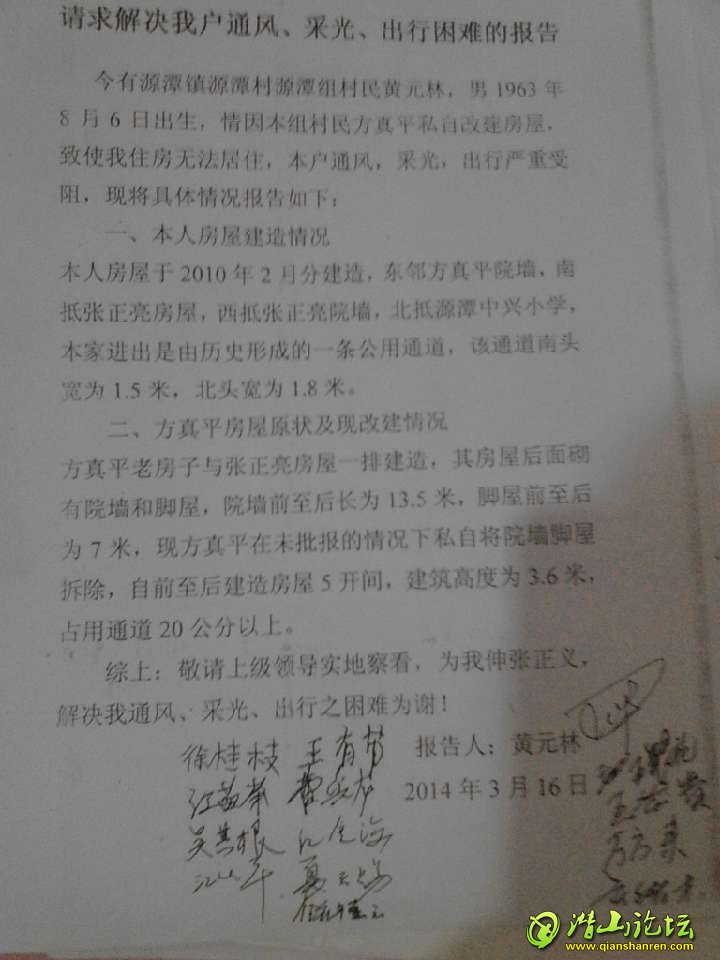 请求解决我户通风、采光、出行困难的报告
今有源潭镇源潭村源潭组村民黄元林，男 1963 年
8 月 6 日出生，情因本组村民方真平私自改建房屋，
致使我住房无法居住，本户通风，采光，出行严重受
阻，现将具体情况报告如下：
一、本人房屋建造情况
本人房屋于 2010 年 2 月分建造，东邻方真平院墙，南
抵张正亮房屋，西抵张正亮院墙，北抵源潭中兴小学，
本家进出是由历史形成的一条公用通道，该通道南头
宽为 1.5 米，北头宽为 1.8 米。
二、方真平房屋原状及现改建情况
方真平老房子与张正亮房屋一排建造，其房屋后面砌
有院墙和脚屋，院墙前至后长为 13.5 米，脚屋前至后
为 7 米，现方真平在未批报的情况下私自将院墙脚屋
拆除，自前至后建造房屋 5 开间，建筑高度为 3.6 米，
占用通道 20 公分以上。
综上：敬请上级领导实地察看，为我伸张正义，
解决我通风、采光、出行之困难为谢！
报告人：黄元林
2014 年 3 月 16 日
徐桂枝 王有节
吴其根
潜山论坛
www.qianshanren.com